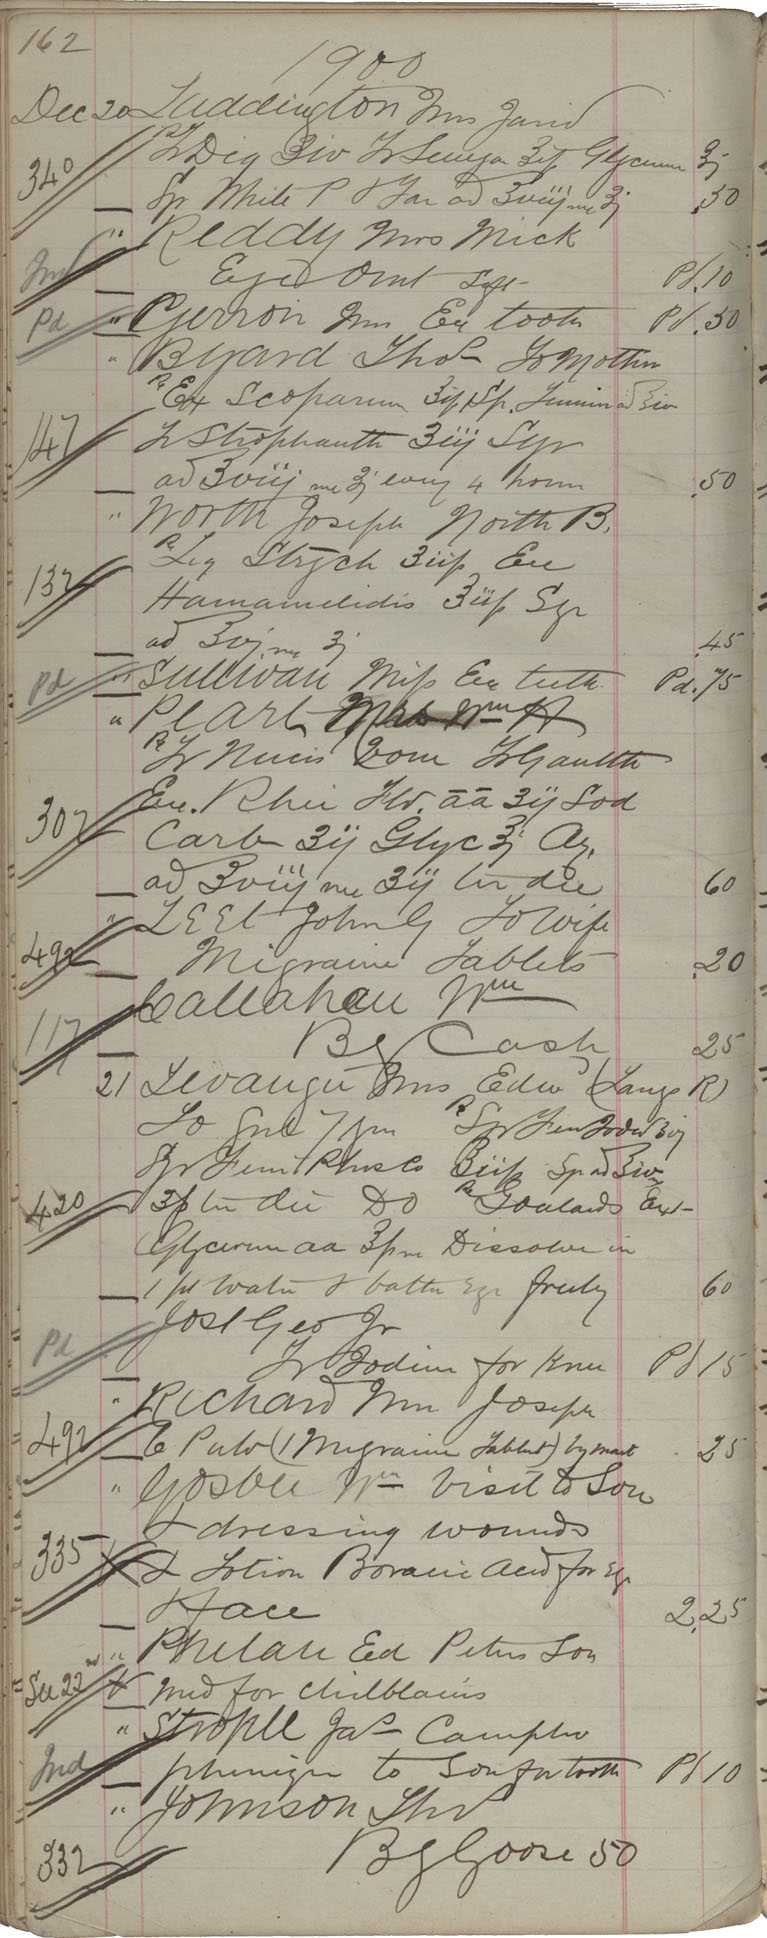 162
1900
Dec 20 Luddington Mrs Jarid
340 Tr Dig ʒiv Tr Senega ʒii Glycerine ℥j
Syr White P & Tar ad ℥viij ʒj .50
" Reddy Mrs Mick
Ind Eyes Oint Pd .10
Pd " Gerroir Mrs Ex tooth Pd .50
" Byard Thos To Mother
Ex Scoparium Sp. Junip ad ℥iv
147 Tr Strophanth ʒiij Syr
ad ℥viij ʒj every 4 hours .50
" Worth Joseph North B.
132 Liq Strych ʒiiſs Ex
Hamamelidis Syr
ad ℥vj ʒj .45
Pd " Sullivan Miss Ex teeth Pd .75
" Peart Wm H
Tr Nucis Vom Tr Gaulth
307 Ex. Rhei Fld. āā ʒij Sod
Carb ʒij Glyc ℥j Aq.
ad ℥viij ʒij ter die 60
" Leet John G To Wife
492 Migraine Tablets .20
Callahan Wm
117 By Cash 25
21 Levangie Mrs Edw (Langs R)
Syr Ferri Iodid
Syr Ferri Phos Co
420 ter die Do Goulards Ext
Glycerine aa Dissolve in
1 pt Water & bathe freely 60
Jost Geo Jr
Pd Tr Iodine for Knee Pd 15
" Richard Mrs Joseph
492 6 Pulv (1 Migraine Tablet) by mail 25
" Gosbee Wm Visit to Son
& dressing wounds
335 X & Lotion Boracic Acid for Eye
& Face 2.25
" Phelan Ed Peters Son
See 22nd X Med for Chilblains
" Strople Jas Campho
Ind phenique to Son for tooth Pd 10
" Johnson Thos
332 By Goose 50